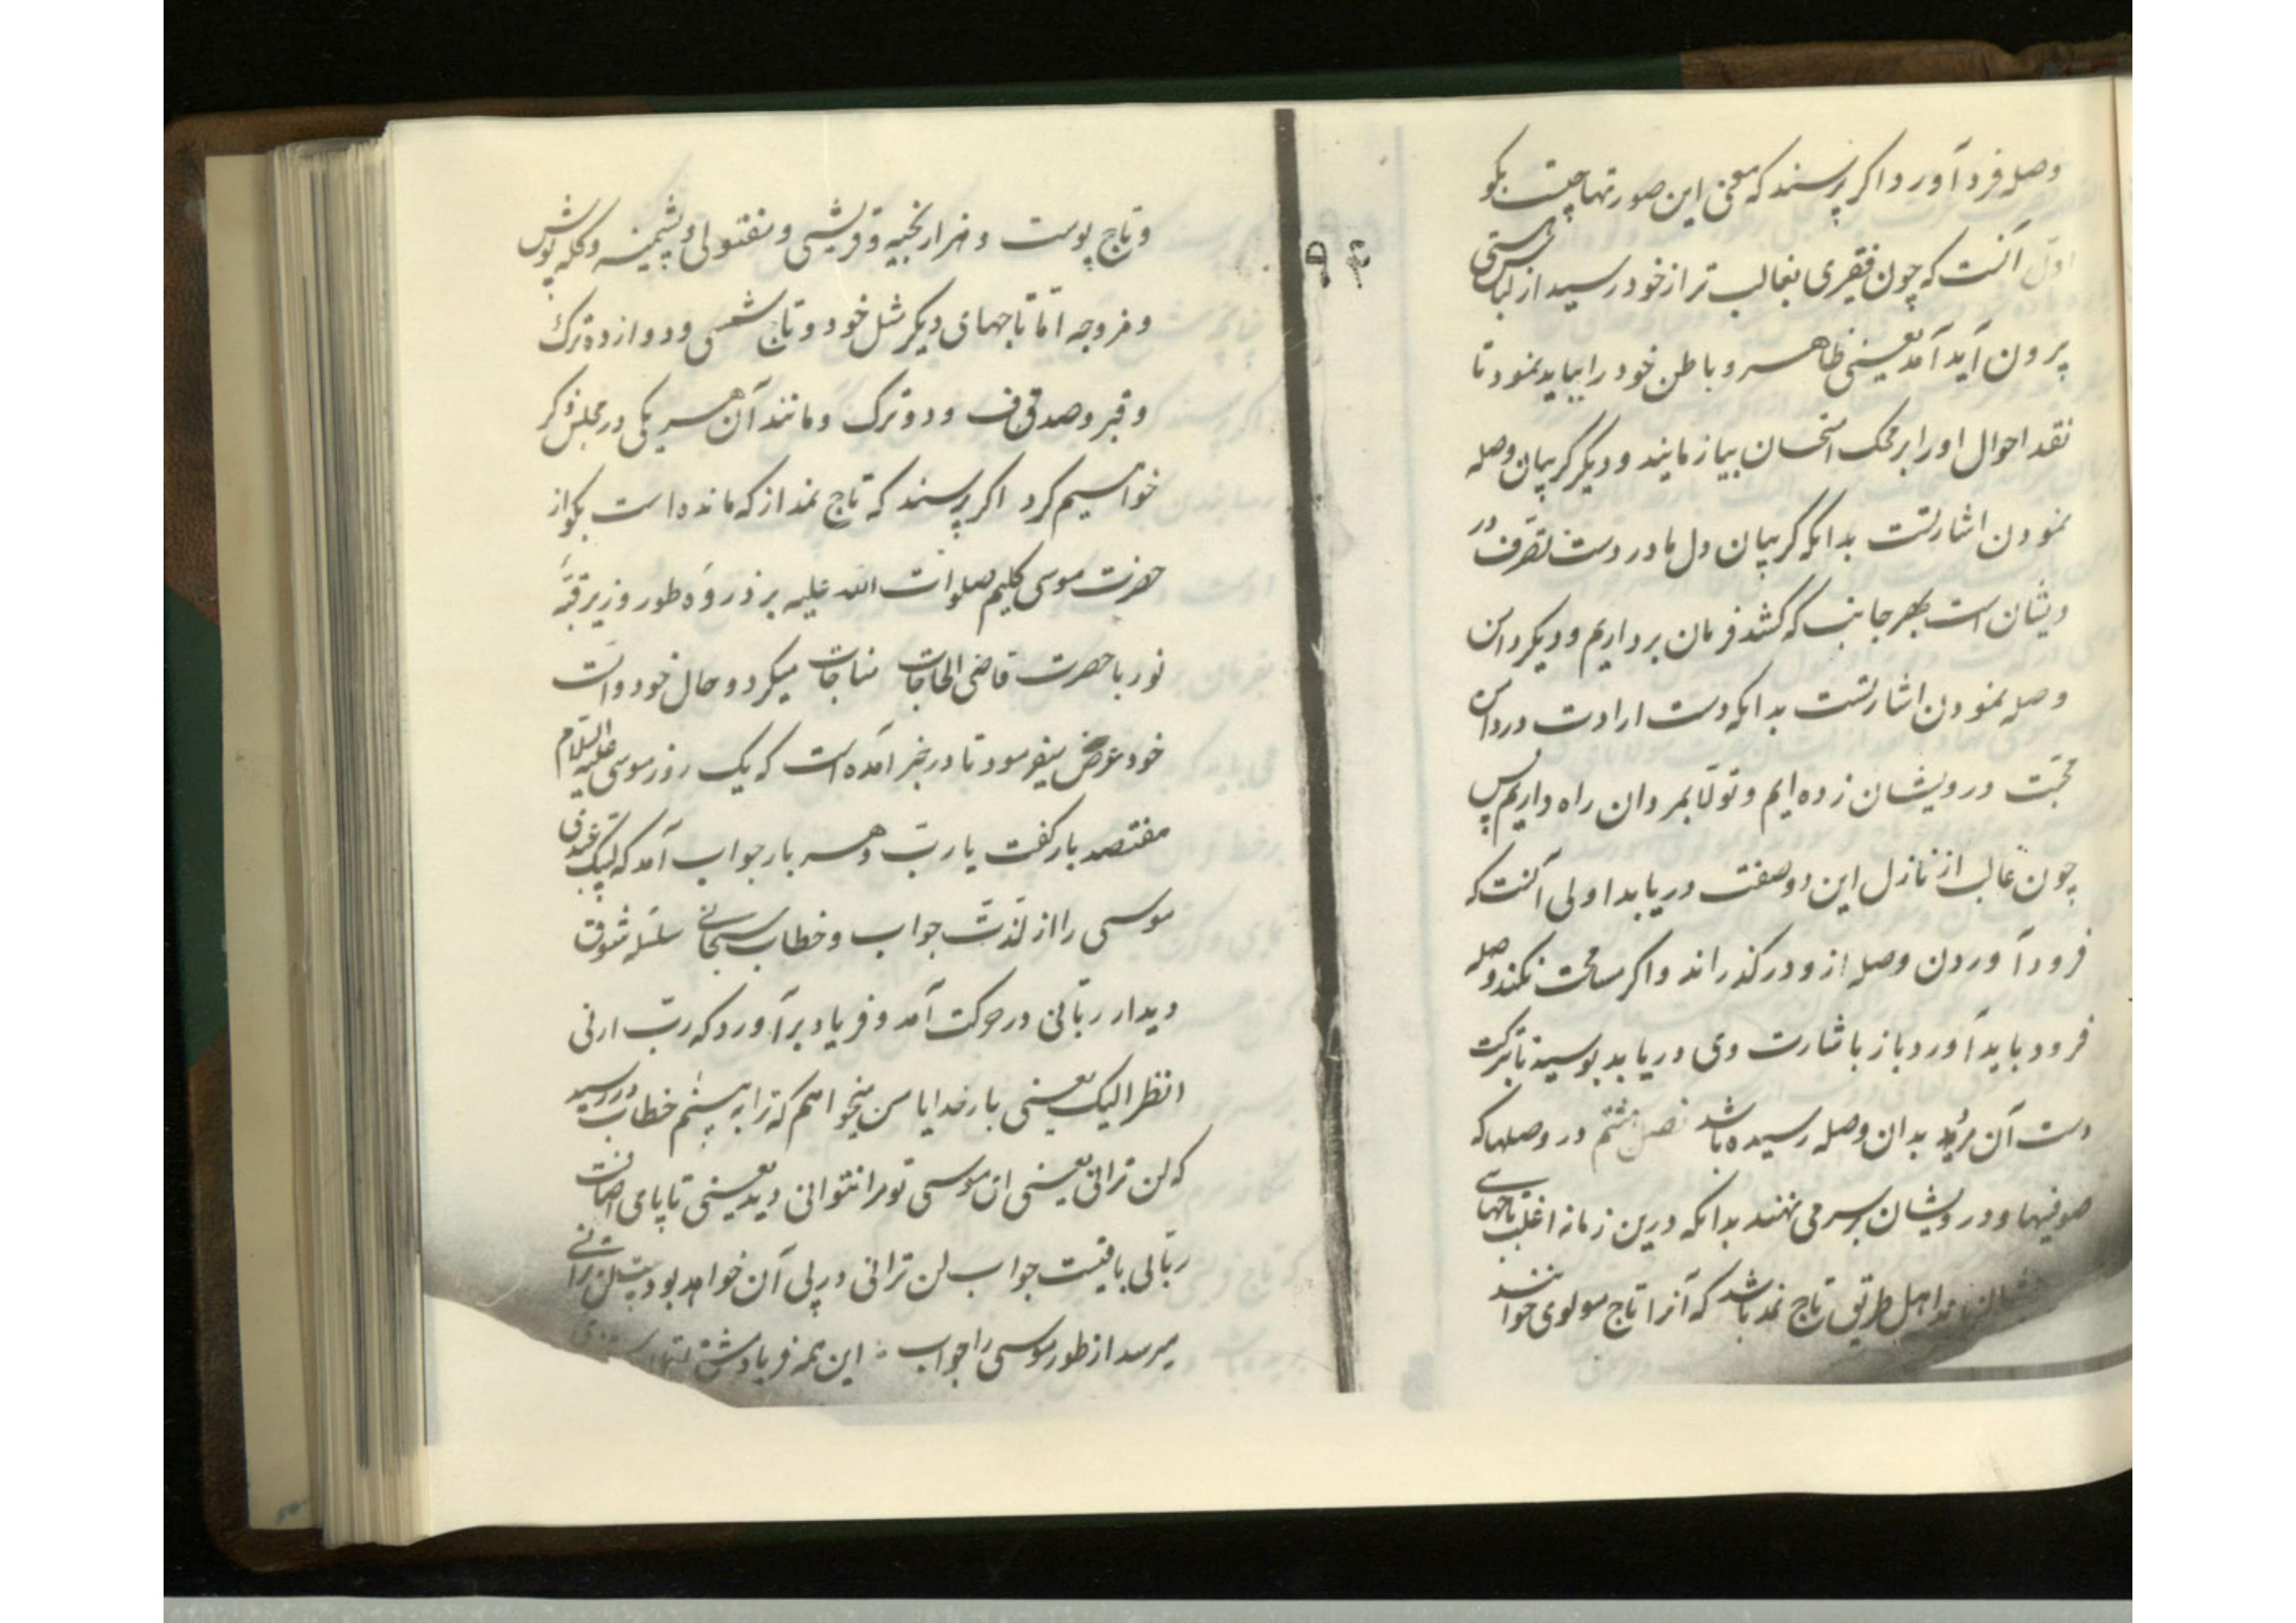 وصله فرد آورد اگر پرسند که معنی این صورتها چیست بگو
اول آنست که چون فقیری بغالب تر از خود رسید از لباس هستی
برون آید آمد یعنی ظاهر و باطن خود را بباید نمود تا
نقد احوال او را بر محک امتحان بیازمایند و دیگر گریبان وصله
نمودن اشارتست بدانکه گریبان دل ما در دست تصرف در
ویشان است بهر جانب که کشد فرمان برداریم و دیگر دامن
وصله نمودن اشارتست بدانکه دست ارادت در دامن
محبّت درویشان زده ایم و تولّا بمردان راه داریم پس
چون غالب از نازل این دو صفت دریابد اولی آنست که
فرود آوردن وصله ازو درگذراند و اگر مسامحت نکند وصله
فرود باید آورد و باز باشارت وی دریابد بوسیدن تا برکت
دست آن مرد بدان وصله رسیده باشد فصل هشتم در وصلهائکه
صوفیها و درویشان بر سر می نهند بدانکه درین زمانه اغلب تاجهای
اهل طریق تاج نمد باشد که آنرا تاج مولوی خوانند
۹۴
و تاج پوست و هزار بخیه و قریشی و مفتولی و پشمینه و کله پوش
و فروجه امّا تاجهای دیگر مثل خود و تاج شمسی و دوازده ترک
و قبر و صدقی ف و دو ترک و مانند آن هر یکی در مجلس ذکر
خواهیم کرد اگر پرسند که تاج نمد از که مانده است بگو از
حضرت موسی کلیم صلوات الله علیه بر ذروه طور و زیر قبّه
نور با حضرت قاضی الحاجات مناجات میکرد و حال خود و امّت
خود عرض میفرمود تا در خبر آمده است که یک روز موسی علیه السلام
هفتصد بار گفت یا ربّ و هر بار جواب آمد که لبیک عبدی
موسی را از لذّت جواب و خطاب سبحانی سلسله شوق
دیدار ربّانی در حرکت آمد و فریاد برآورد که ربّ ارنی
انظر الیک یعنی بار خدایا من میخواهم که ترا به بینم خطاب در رسید
که لن ترانی یعنی ای موسی تو مرا نتوانی دید یعنی تا پای اضافت
ربّانی باقیست جواب لن ترانی در پی آن خواهد بود بیت لن ترانی
میرسد از طور موسی را جواب : این همه فریاد مشتاقان